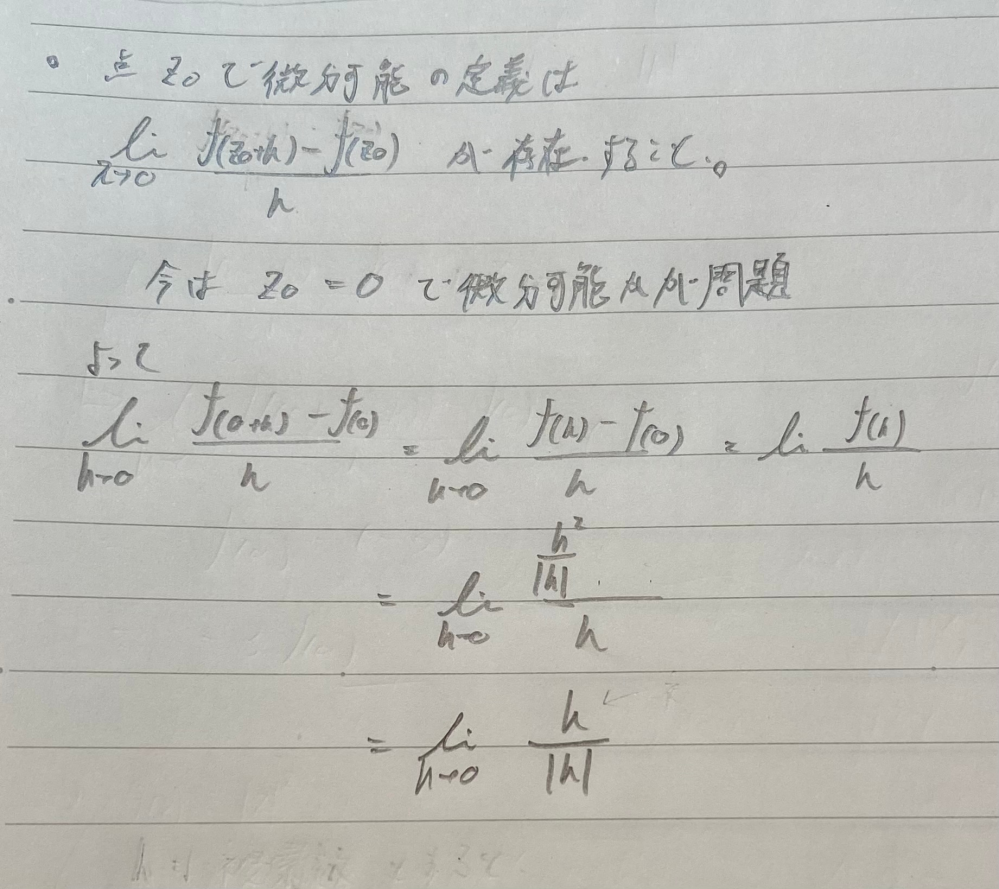 。 点 z₀ で微分可能の定義は
li z→0 f(z₀+h)-f(z₀) / h が存在すること。
今は z₀ = 0 で微分可能かが問題
よって
li h→0 f(0+h) - f(0) / h = li h→0 f(h) - f(0) / h = li f(h) / h
= li h→0 h²/|h| / h
= li h→0 h / |h|